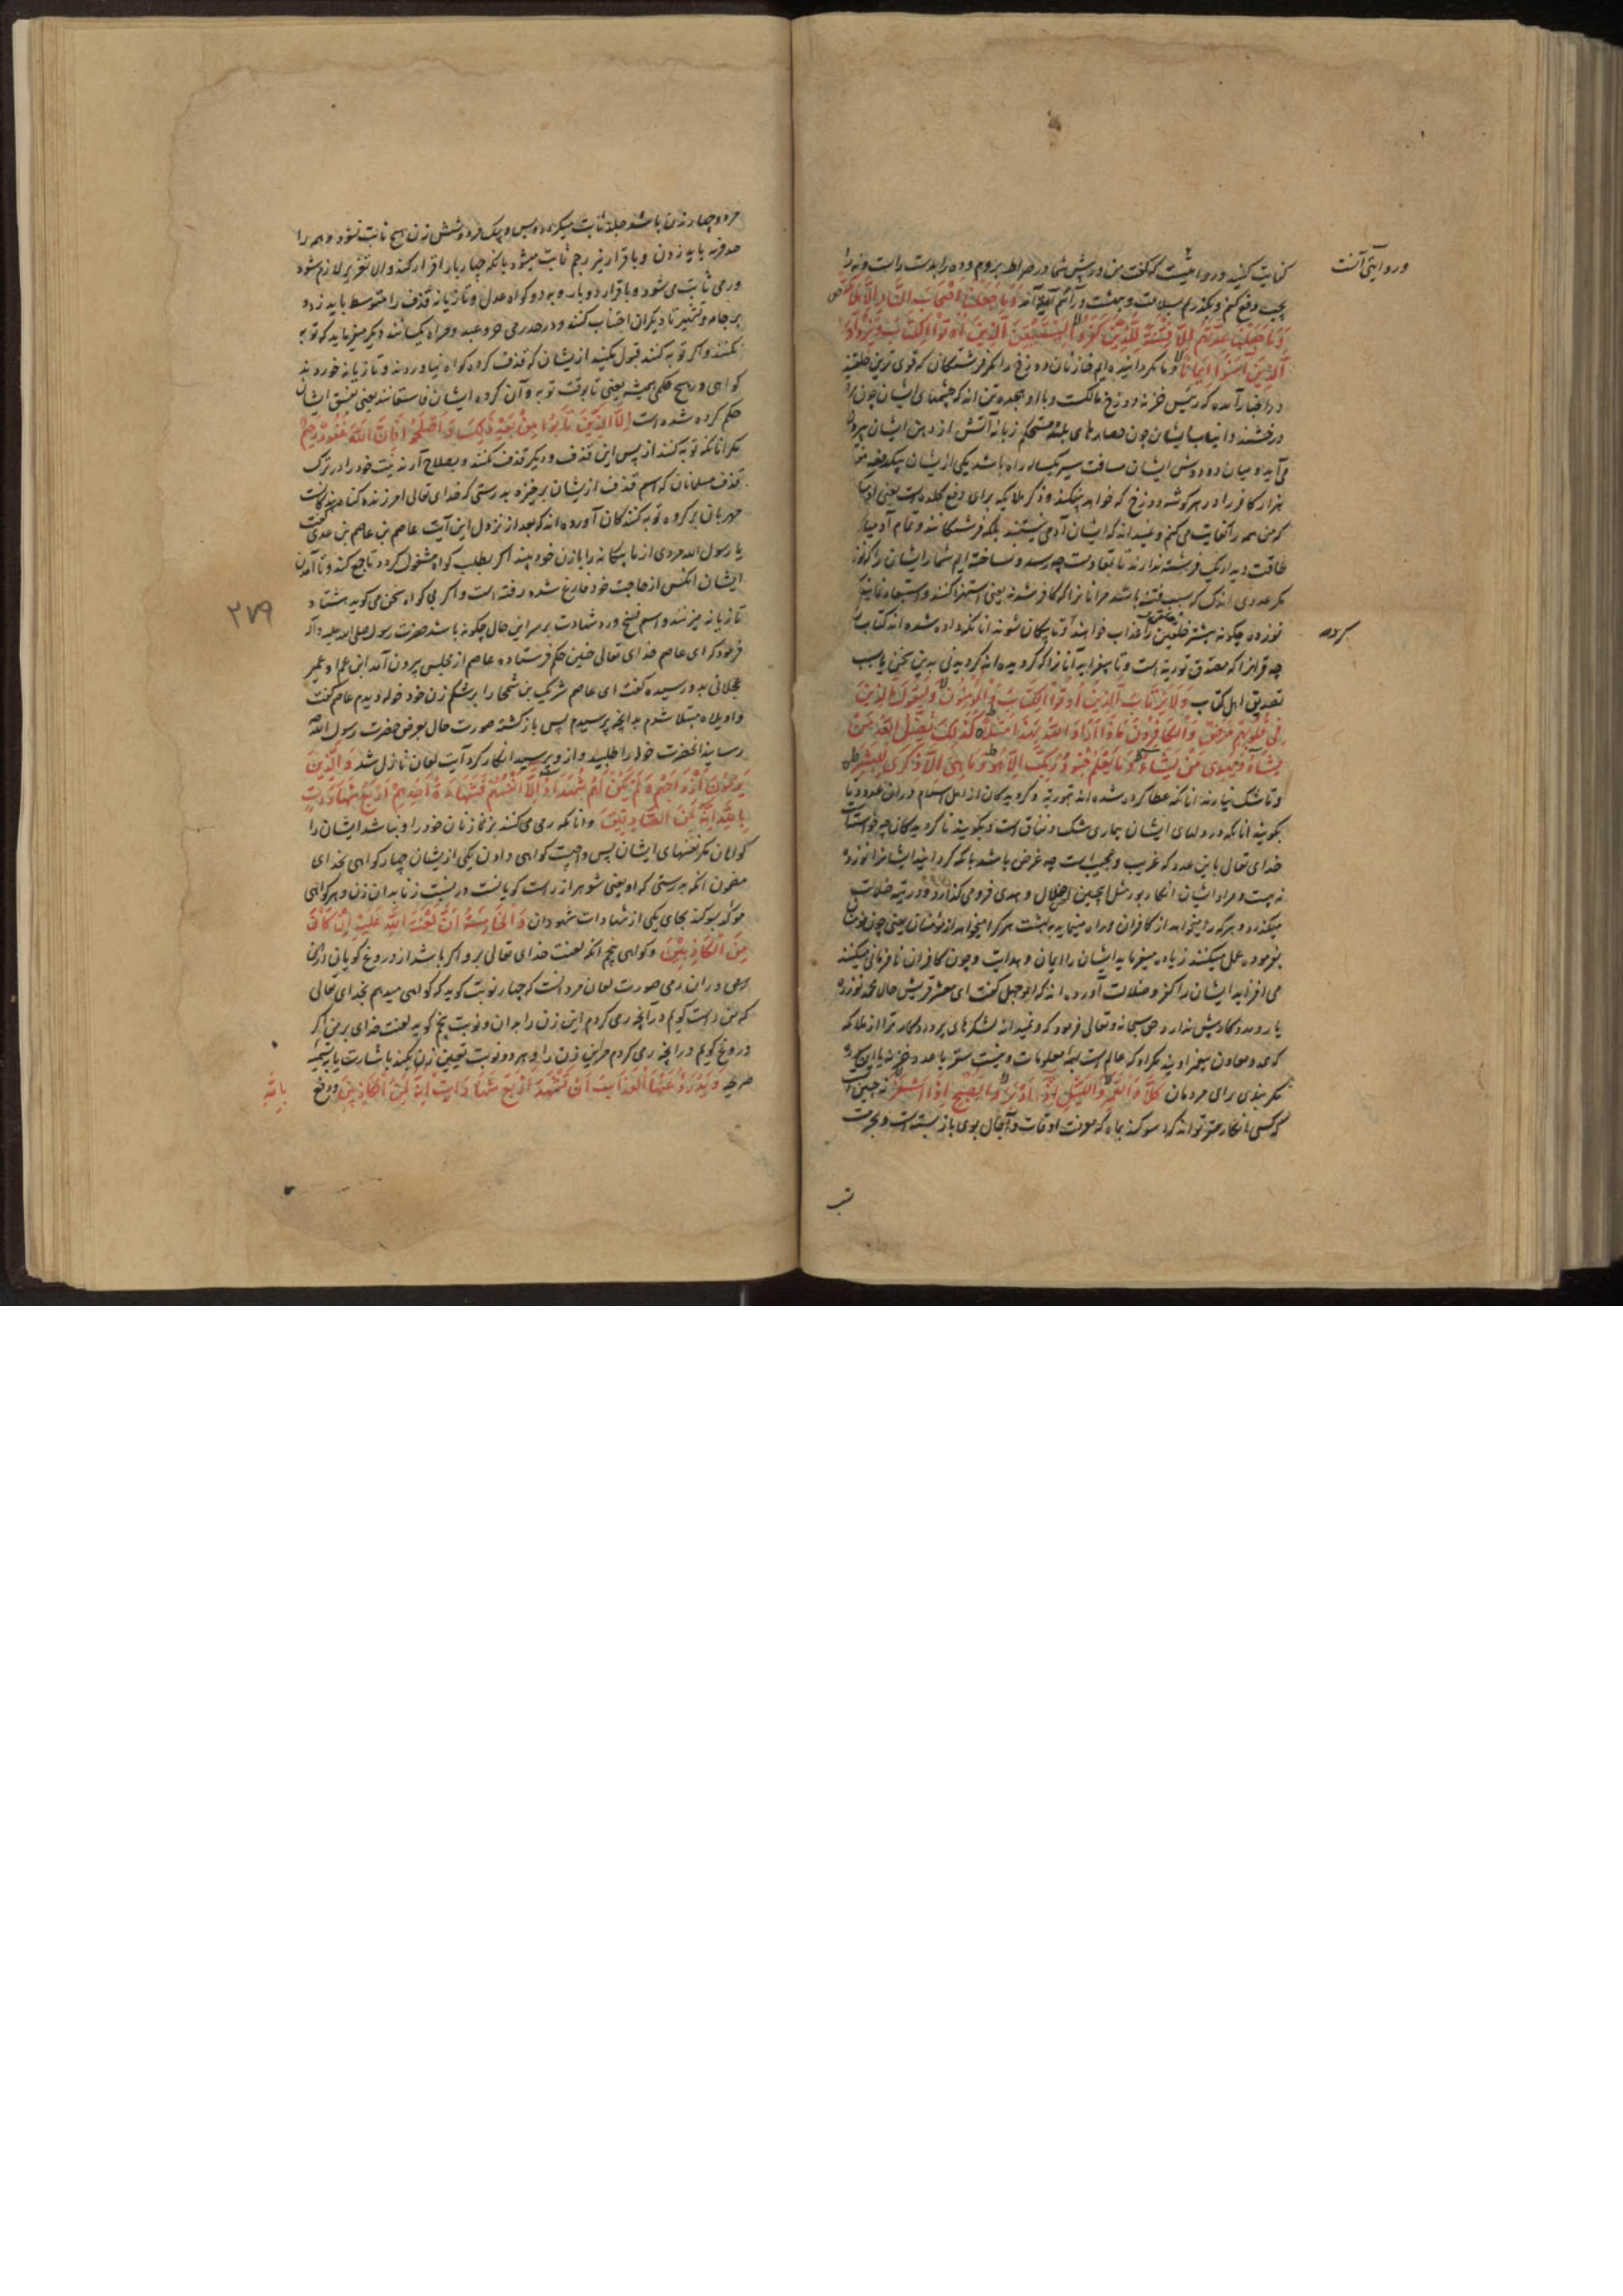 در روایتی آنست
کفایت کنید و روایتیست که گفت من در پیش شما در صراط بروم و ده را بدست راست و نه را
بچپ دفع کنم و بگذریم بسلامت و ببهشت درآئیم آیه آمد وَمَا جَعَلْنَا أَصْحَابَ النَّارِ إِلَّا مَلَائِكَةً
وَمَا جَعَلْنَا عِدَّتَهُمْ إِلَّا فِتْنَةً لِلَّذِينَ كَفَرُوا لِيَسْتَيْقِنَ الَّذِينَ أُوتُوا الْكِتَابَ وَيَزْدَادَ
الَّذِينَ آمَنُوا إِيمَانًا و ما نگردانیده ایم خازنان دوزخ را مگر فرشتگان که قوی ترین خلقند
در اخبار آمده که رئیس خزنه دوزخ مالکست و با او هجده تن اند که چشمهای ایشان چون برق
درخشند و انیاب ایشان چون حصارهای بلند مستحکم زبانه آتش از دهن ایشان بیرون
می آید و میان دو دوش ایشان مسافت سیر یکساله راه باشد یکی ازیشان بیکدفعه هفتاد
هزار کافر را در هر گوشه دوزخ که خواهد بیفکند و ذکر ملایکه برای دفع کلده است یعنی او
که من همه را کفایت می کنم و نمیداند که ایشان آدمی نیستند بلکه فرشتگانند و تمام آدمیان
طاقت دیدار یک فرشته ندارند تا بمقاومت چه رسد و نساخته ایم شمار ایشان را که نوزده
مگر عددی اندک که سبب فتنه باشد مر آنانرا که کافر شدند یعنی استهزا کنند و استبعاد نمایند که
نوزده چگونه بیشتر خلقین را عذاب خواهند کرد و تا بیگمان شوند آنانکه داده شده اند کتاب
کرد
چه قرآنرا که مصدق توریة است و تا بیفزاید آنانرا که گرویده اند گرویدنی بدین سخن یا بسبب
تصدیق اهل کتاب وَلَا يَرْتَابَ الَّذِينَ أُوتُوا الْكِتَابَ وَالْمُؤْمِنُونَ وَلِيَقُولَ الَّذِينَ
فِي قُلُوبِهِمْ مَرَضٌ وَالْكَافِرُونَ مَاذَا أَرَادَ اللَّهُ بِهَذَا مَثَلًا كَذَلِكَ يُضِلُّ اللَّهُ مَنْ
يَشَاءُ وَيَهْدِي مَنْ يَشَاءُ وَمَا يَعْلَمُ جُنُودَ رَبِّكَ إِلَّا هُوَ وَمَا هِيَ إِلَّا ذِكْرَى لِلْبَشَرِ
و تا شک نیارند آنانکه عطا کرده شده اند توریة و گرویدگان از اهل اسلام در این عدد و تا
بگویند آنانکه در دلهای ایشان بیماری شک و نفاق است و بگویند ناگرویدگان چه خواست
خدای تعالی باین عدد که غریب و عجیب است چه غرض باشد بآنکه گردانید ایشانرا نوزده
نه بیست و مراد ایشان انکار بود مثل اینچنین اضلال و هدی فرو می گذارد و در تیه ضلالت
میگذارد هر که را میخواهد از کافران و راه مینماید ببهشت هر کرا میخواهد از مؤمنان یعنی چون مؤمنان
بفرموده عمل میکنند زیاده میفرماید ایشان را ایمان و هدایت و چون کافران نافرمانی میکنند
می افزاید ایشان را کفر و ضلالت آورده اند که ابوجهل گفت ای معشر قریش حال محمد نوزده
یار و مددکار بیش ندارد حق سبحانه و تعالی فرمود که و نمیداند لشکرهای پروردگار ترا از ملائکه
که و معاون پیغمراوند مگر او که عالم است بهمه معلومات و نیست سقر با عدد خزنه یا این سوره
مگر پندی برای مردمان كَلَّا وَالْقَمَرِ وَاللَّيْلِ إِذْ أَدْبَرَ وَالصُّبْحِ إِذَا أَسْفَرَ نه چنین است
که کسی انکار سقر تواند کرد سوگند بماه که معرفت اوقات و آجال بوی باز بسته است و بحرمت
شب
مرد و چهار زن باشد جلد ثابت میگردد و بس و بیک مرد و شش زن هیچ ثابت نشود و همه را
حد فریه باید زدن و باقرار نیز رجم ثابت میشود بآنکه چهار بار اقرار کند و الا تعزیر لازم شود
و رمی ثابت می شود و باقرار دو بار و بدو گواه عدل و تازیانه قذف را متوسط باید زد و
بر جامه و تشهیر تا دیگران اجتناب کنند و در حد رمی حر و عبد و مراه یکسانند دیگر میفرماید که توبه
نکنند و اگر توبه کنند قبول نکنید ازیشان که قذف کرده گواه نیاوردند و تازیانه خوردند
گواهی در هیچ حکمی همیشه یعنی تا بوقت توبه و آن گروه ایشان فاسقانند یعنی بفسق ایشان
حکم کرده شده است إِلَّا الَّذِينَ تَابُوا مِنْ بَعْدِ ذَلِكَ وَأَصْلَحُوا فَإِنَّ اللَّهَ غَفُورٌ رَحِيمٌ
مگر آنانکه توبه کنند از پس این قذف و دیگر قذف نکنند و بصلاح آرند نیت خود را در ترک
قذف مسلمانان که اسم قذف ازیشان برخیزد بدرستی که خدای تعالی آمرزنده گناه بندگانست
مهربان بر گروه توبه کنندگان آورده اند که بعد از نزول این آیت عاصم بن عاصم بن عدی گفت
یا رسول الله مردی از ما بیگانه را با زن خود بیند اگر بطلب گواه مشغول گردد تا جمع کند و تا آمدن
ایشان آنکس از حاجت خود فارغ شده رفته است و اگر بی گواه سخن می گوید هشتاد
۲۷۹
تازیانه میزنند و اسم فسخ و رد شهادت بر سر این حال چگونه باشد حضرت رسول صلی الله علیه وآله
فرمود که ای عاصم خدای تعالی چنین حکم فرستاده عاصم از مجلس بیرون آمد ابن عم او عمیر
عجلانی بدو رسیده گفت ای عاصم شریک بن سحما را بر شکم زن خود خوله دیدم عاصم گفت
واویلاه مبتلا شدم بدانچه پرسیدم پس بازگشته صورت حال بعرض حضرت رسول الله
رسانید آنحضرت خوله را طلبید و ازو پرسید انکار کرد آیت لعان نازل شد وَالَّذِينَ
يَرْمُونَ أَزْوَاجَهُمْ وَلَمْ يَكُنْ لَهُمْ شُهَدَاءُ إِلَّا أَنْفُسُهُمْ فَشَهَادَةُ أَحَدِهِمْ أَرْبَعُ شَهَادَاتٍ
بِاللَّهِ إِنَّهُ لَمِنَ الصَّادِقِينَ و آنانکه رمی می کنند بزنا زنان خود را و نباشد ایشان را
گواهان مگر نفسهای ایشان پس واجبست گواهی دادن یکی ازیشان چهار گواهی بخدای
مضمون آنکه بدرستی که او یعنی شوهر از راست گویانست در نسبت زنا بدان زن و هر گواهی
مؤکد بسوگند بجای یکی از شهادات شهودان وَالْخَامِسَةُ أَنَّ لَعْنَتَ اللَّهِ عَلَيْهِ إِنْ كَانَ
مِنَ الْكَاذِبِينَ و گواهی پنجم آنکه لعنت خدای تعالی برو اگر باشد از دروغ گویان در آن
رمی در آن رمی صورت لعان مرد آنست که چهار نوبت گوید که گواهی میدهم بخدای تعالی
که من راست گویم در آنچه رمی کردم این زن را بدان و نوبت پنجم گوید لعنت خدای بر من اگر
دروغ گویم در آنچه رمی کردم مر این زن را و هر دو نوبت تعیین زن بکند باشارت یا بتسمیه
صریح وَيَدْرَؤُا عَنْهَا الْعَذَابَ أَنْ تَشْهَدَ أَرْبَعَ شَهَادَاتٍ إِنَّهُ لَمِنَ الْكَاذِبِينَ و دفع
بِاللَّهِ